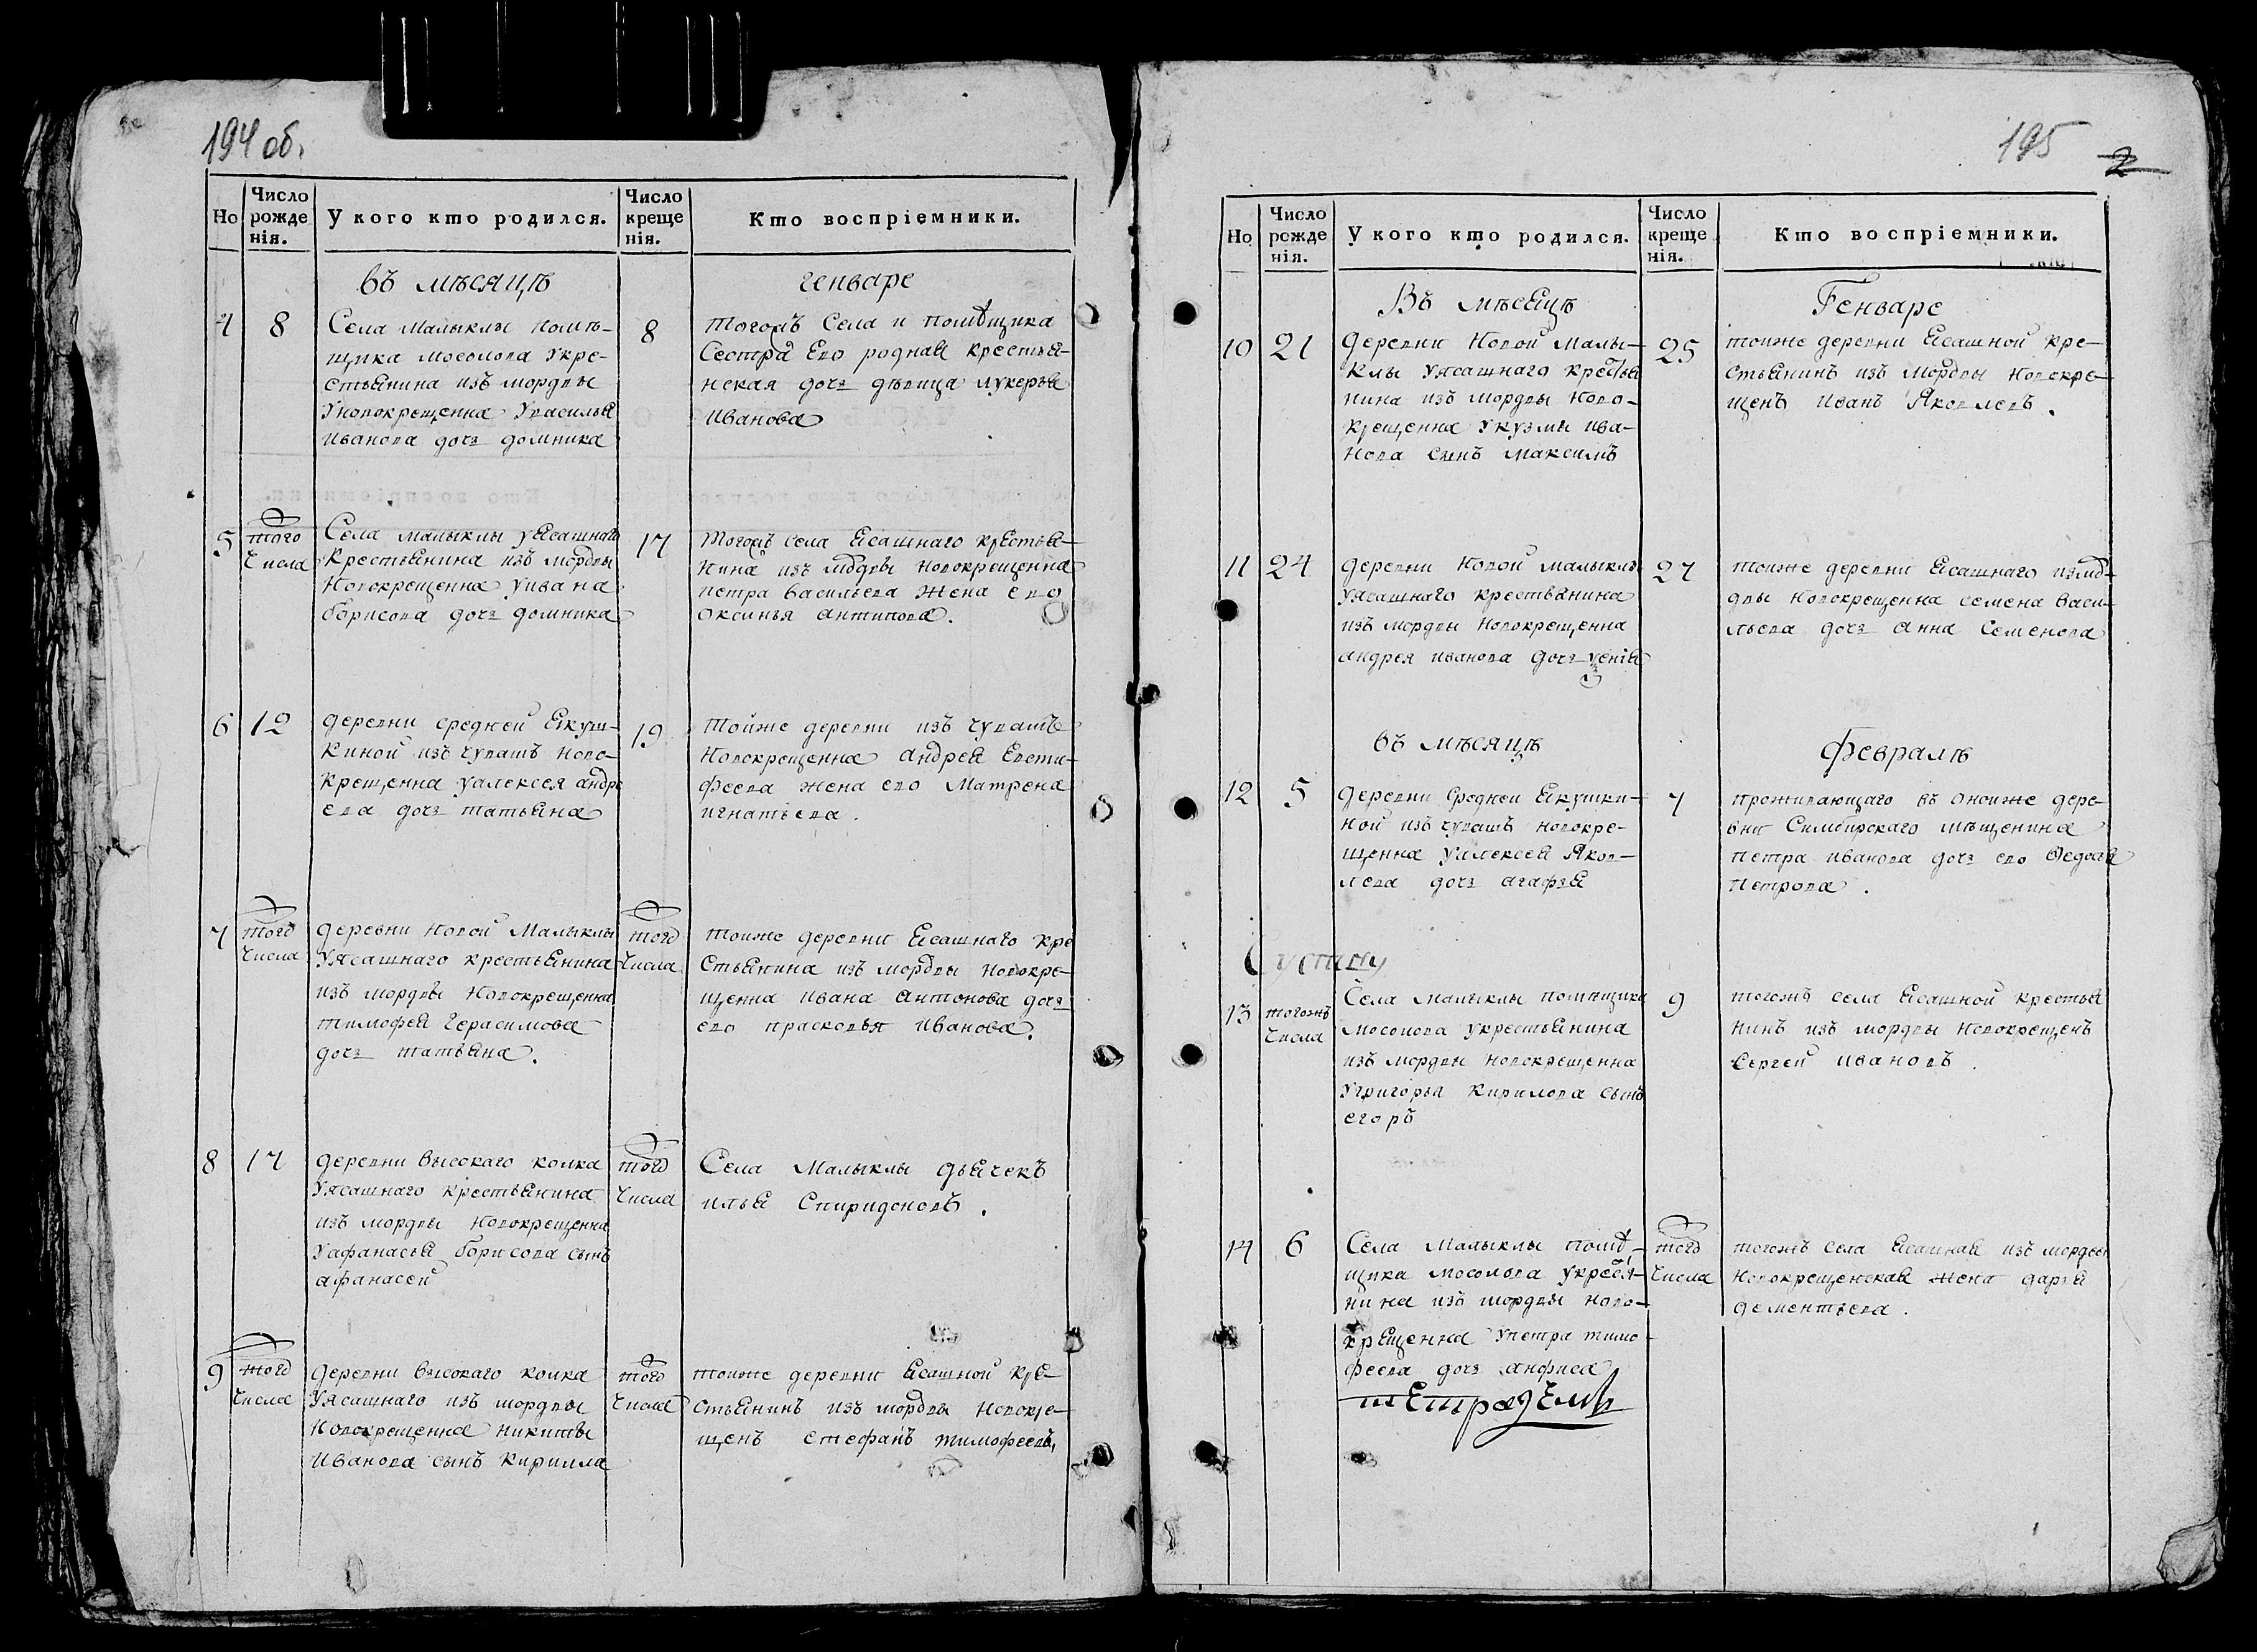 194 об.
Но
Число рожде нія.
У кого кто родился.
Число креще нія.
Кто воспріемники.
въ мѣсяцѣ
генваре
4
8
Села Малыклы помѣ-
щика Мосолова укре-
стьянина изъ мордвы
уновокрещенна увасилья
иванова дочь домника
8
тогожъ Села и помѣщика
Сестра Его родная крестья-
нская дочь дѣвица лукерья
иванова
5
того
Числа
Села малыклы уясашнаго
крестьянина изъ мордвы
Новокрещенна уивана
борисова дочь домника
17
тогожъ села ясашнаго крестья-
нина изъ мордвы новокрещенна
петра васильева жена ево
оксинья антипова.
6
12
деревни средней якуш-
киной изъ чувашъ ново-
крещенна уалексея андре
ева дочь татьяна
19
тойже деревни изъ чувашъ
Новокрещенна андрея Евсти-
феева жена ево Матрена
игнатьева.
7
того
Числа
деревни новой Малыклы
уясашнаго крестьянина
изъ мордвы Новокрещенна
тимофея герасимова
дочь татьяна.
того
Числа
тоиже деревни ясашнаго кре
стьянина изъ мордвы новокре-
щенна ивана антонова дочь
ево прасковья иванова.
8
17
деревни высокаго колка
уясашнаго крестьянина
изъ мордвы Новокрещенна
уафанасья борисова сынъ
афанасей
того
Числа
Села Малыклы дьячекъ
илья Спиридоновъ.
9
того
Числа
деревни высокаго колка
уясашнаго изъ мордвы
Новокрещенна никиты
иванова сынъ кирилла
того
Числа
тоиже деревни ясашной кре-
стьянинъ изъ мордвы новокре-
щенъ стефанъ тимофеевъ,
195
2
Но
Число рожде нія.
У кого кто родился.
Число креще нія.
Кто воспріемники.
Въ мѣсяцѣ
Генваре
10
21
деревни Новой Малы-
клы уясашнаго крестья
нина изъ мордвы ново-
крещенна укузмы ива-
нова сынъ максимъ
25
тоиже деревни ясашной кре-
стьянинъ изъ мордвы новокре-
щенъ иванъ яковлевъ.
11
24
деревни Новой малыклы
уясашнаго крестьянина
изъ мордвы новокрещенна
андрея иванова дочь
27
тоиже деревни ясашнаго измор-
двы новокрещенна семена васи-
льева дочь анна семенова
въ мѣсяцѣ
Февралѣ
12
5
деревни средней якушки-
ной изъ чувашъ новокре-
щенна уалексея Яков-
лева дочь агафья
7
проживающаго въ оноиже дере-
вни Симбирскаго мѣщенина
петра иванова дочь ево Ѳедосья
петрова.
13
тогожъ
Числа
Села малыклы помѣщика
мосолова укрестьянина
изъ мордвы новокрещенна
угригорья кирилова сынъ
егоръ
9
тогожъ села ясашной крестья
нинъ изъ мордвы новокрещенъ
сергей ивановъ.
14
6
Села Малыклы помѣ-
щика мосолова укрестья-
нина изъ мордвы ново-
крещенна упетра тимо-
феева дочь анфиса
того
Числа
тогожъ села ясашная изъ мордвы
Новокрещенская жена дарья
дементьева.